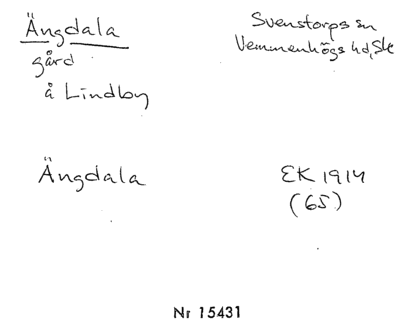 Ängdala
gård
å Lindby
Svenstorps sn
Vemmenhögs hd, Sk
Ängdala
EK 1914
(65)
Nr 15431